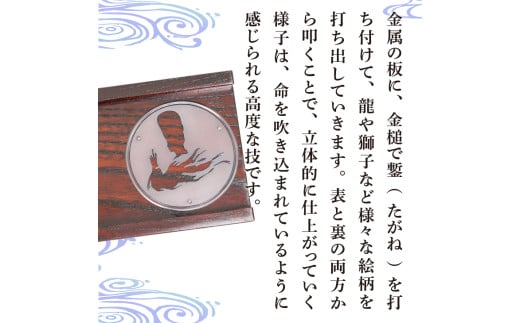 金属の板に、金槌で鏨（たがね）を打
ち付けて、龍や獅子など様々な絵柄を
打ち出していきます。表と裏の両方か
ら叩くことで、立体的に仕上がっていく
様子は、命を吹き込まれているように
感じられる高度な技です。